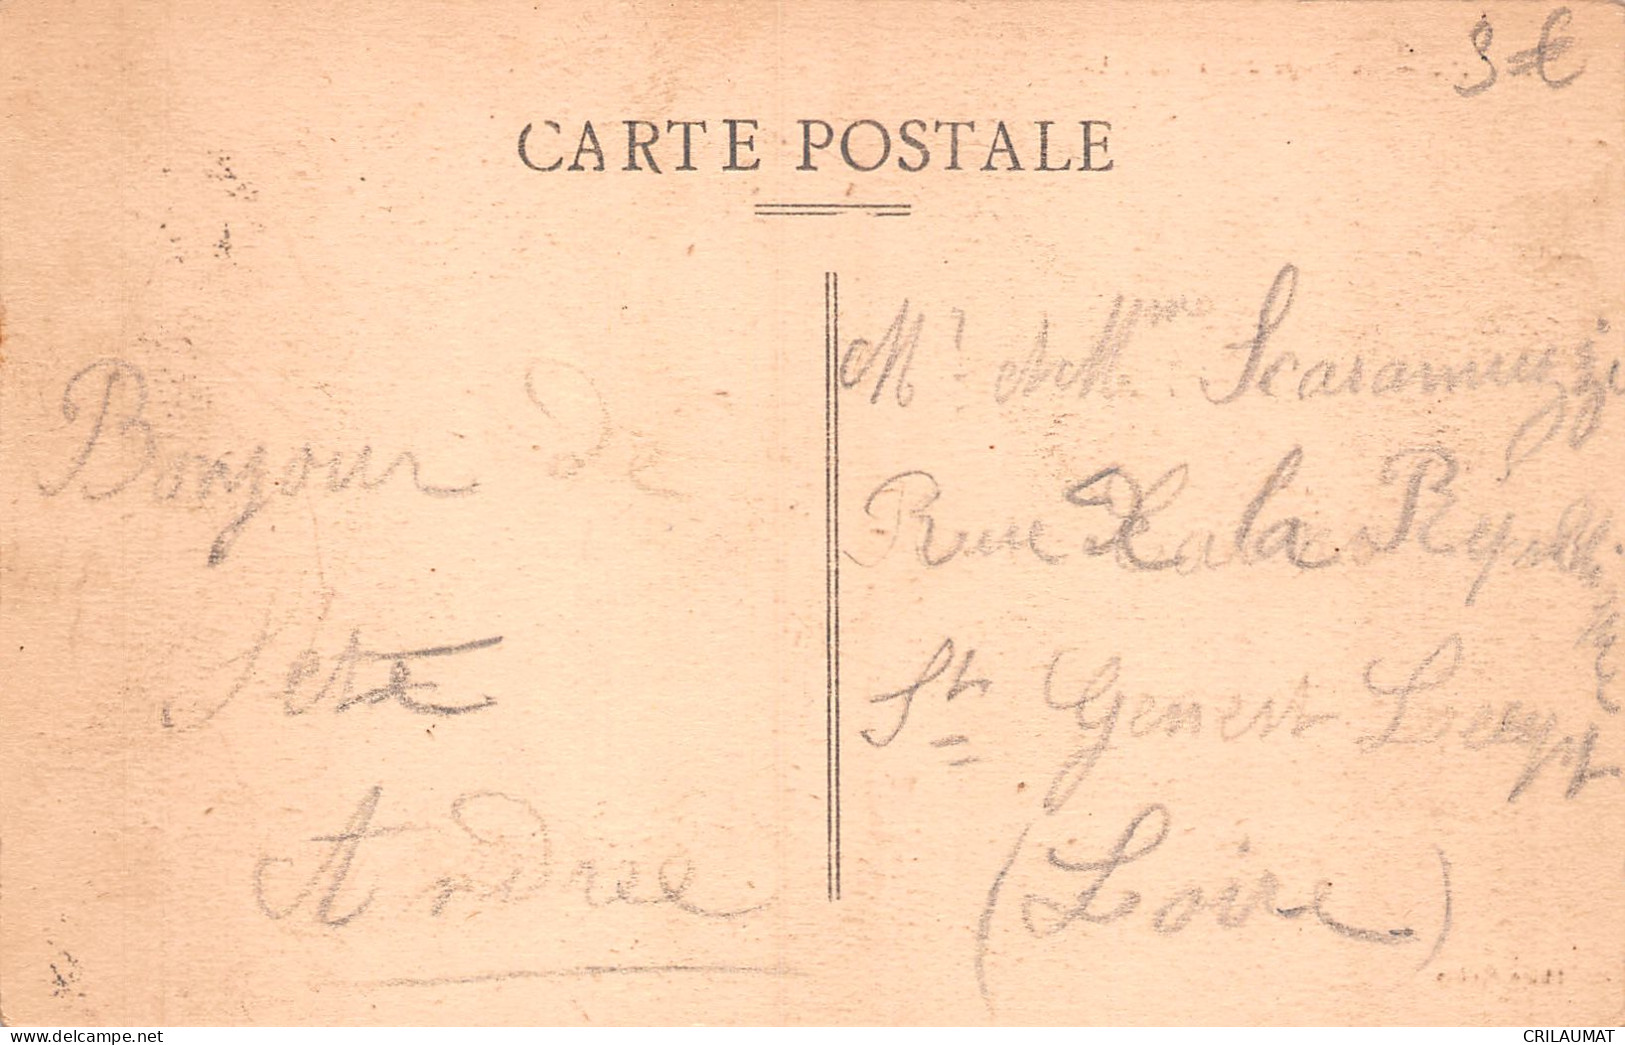 3 €
CARTE POSTALE
Bonjour de
Sete
Andree
Mr. et Mme Scaramuzzi
Rue de la Republi
que
St Genest Lerpt
(Loire)
CRILAUMAT